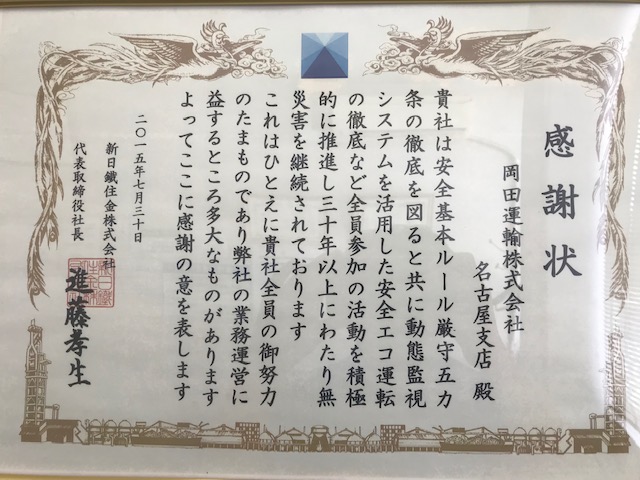 感謝状
岡田運輸株式会社
名古屋支店 殿
貴社は安全基本ルール厳守五カ
条の徹底を図ると共に動態監視
システムを活用した安全エコ運転
の徹底など全員参加の活動を積極
的に推進し三十年以上にわたり無
災害を継続されております
これはひとえに貴社全員の御努力
のたまものであり弊社の業務運営に
益するところ多大なものがあります
よってここに感謝の意を表します
二〇一五年七月三十日
新日鐵住金株式会社
代表取締役社長
進藤孝生